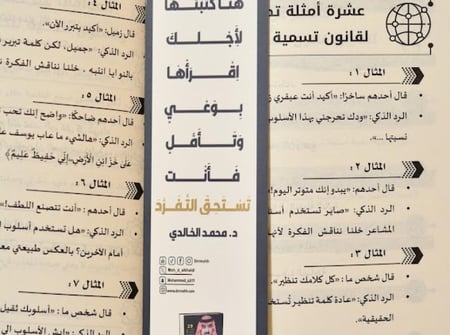 عشرة أمثلة
لقانون تسمية
المثال ١ :
قال أحدهم ساخرًا: «أكيد أنت عبقري
الرد الذكي: «ودك تحرجني بهذا الأسلوب
المثال ٢ :
قال أحدهم: «يبدو إنك متوتر اليوم!
الرد الذكي: «صاير تستخدم
المشاعر خلنا نناقش الفكرة
المثال ٣ :
قال شخص ما: «كل كلامك تنظير».
الرد الذكي: «عادة كلمة تنظير
الحقيقية».
هنا كتبتها
لأجلك
اقرأها
بوعي
وتأمل
فأنت
تستحق التفرد
د. محمد الخالدي
المثال ٤ :
قال زميل: «أكيد بتبرر الآن».
الرد الذكي: «جميل، لكن كلمة تبرير
بالنوايا انتبه . خلنا نناقش الفكرة
المثال ٥ :
قال أحدهم ضاحكًا: «واضح إنك تحب
الرد الذكي: «هالشيء ما عاب يوسف
على خزائن الأرض إني حفيظ عليم﴾
المثال ٦ :
قال أحدهم : «أنت تتصنع اللطف!
الرد الذكي: «هل تستخدم أسلوب
أمام الآخرين؟ بالعكس طبيعتي
المثال ٧ :
قال شخص ما : «أسلوبك ثقيل